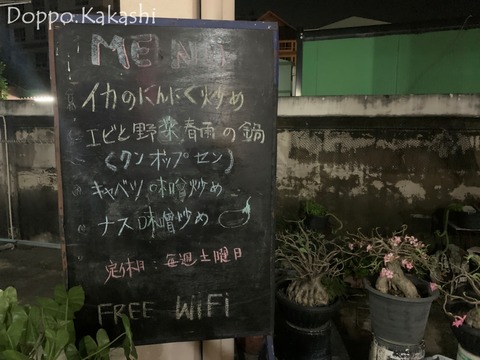 Doppo.Kakashi
MENU
イカのにんにく炒め
エビと野菜春雨の鍋
(クンオップセン)
キャベツ味噌炒め
ナス味噌炒め
定休日:毎週土曜日
FREE WiFi